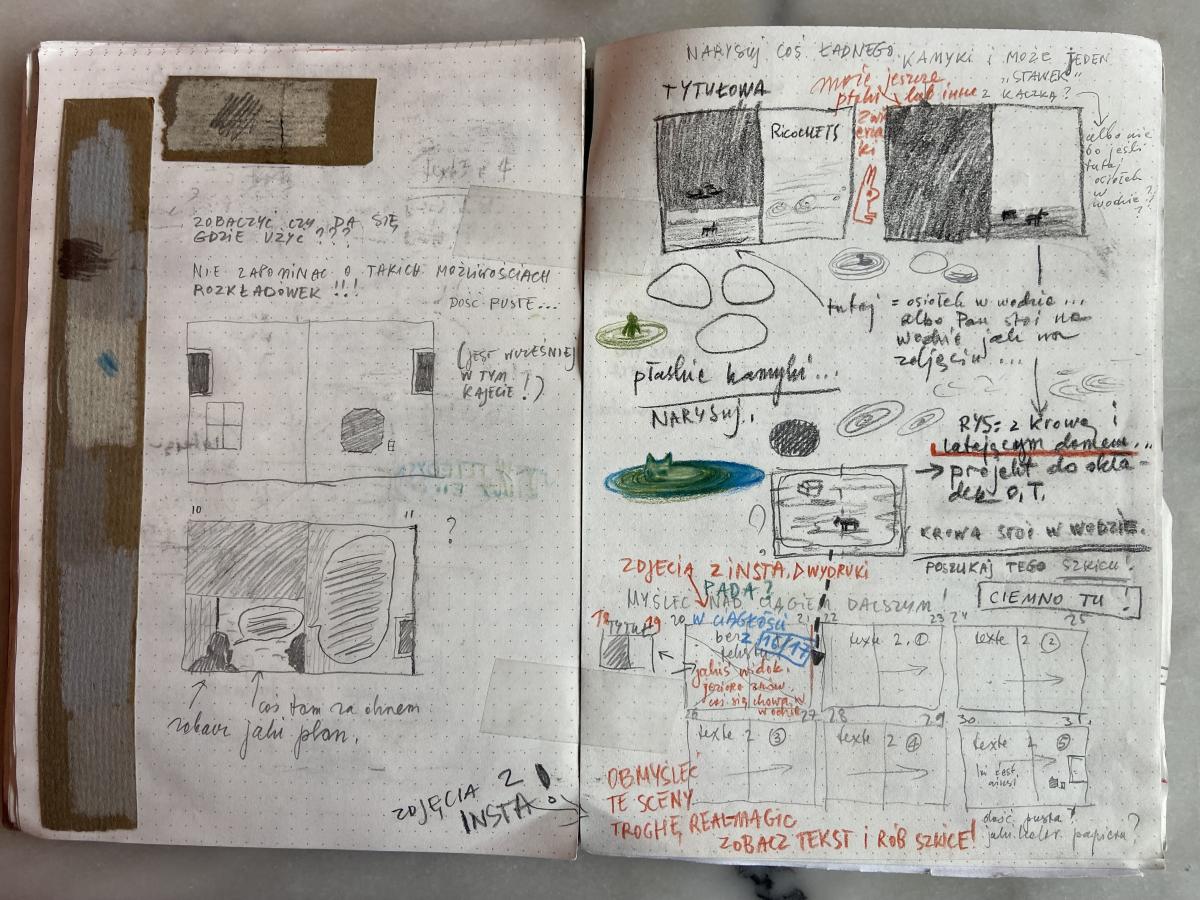 ZOBACZYĆ CZY DA SIĘ
GDZIE UŻYĆ ???
NIE ZAPOMINAĆ O TAKICH MOŻLIWOŚCIACH
ROZKŁADÓWEK !!!
DOŚĆ PUSTE...
(JEST WCZEŚNIEJ
W TYM
KAJECIE!)
10
11
?
coś tam za oknem
zobacz jaki plan.
ZDJĘCIA Z
INSTA!
NARYSUJ COŚ ŁADNEGO
KAMYKI I MOŻE JEDEN
„STAWEK”
Z KACZKĄ?
TYTUŁOWA
może jeszcze
ptaki lub inne
zwierzaki
RICOCHETS
albo nie
bo jeśli
tutaj
osiołek
w
wodzie?
??
tutaj = osiołek w wodzie...
albo Pan stoi na
wodzie jak na
zdjęciu...
płaskie kamyki...
NARYSUJ.
RYS. z krową i
latającym domem...
→ projekt do okła-
dek O.T.
KROWA STOI W WODZIE.
POSZUKAJ TEGO SZKICU!
ZDJĘCIA Z INSTA, WYDRUKI
PADA?
MYŚLEĆ NAD CIĄGIEM DALSZYM!
CIEMNO TU!
18
TYTUŁ
19
20
W CIĄGŁOŚCI
Z 16/17
bez
tekstu
jakiś widok.
jezioro znów
coś się chowa w
wodzie
21
22
texte 2. ①
23
24
texte 2 ②
25
26
texte 2 ③
27
28
texte 2 ④
29
30
texte 2 ⑤
31
OBMYŚLEĆ
TE SCENY
TROCHĘ REALMAGIC
ZOBACZ TEKST I RÓB SZKICE!
dość pusta
papieru?